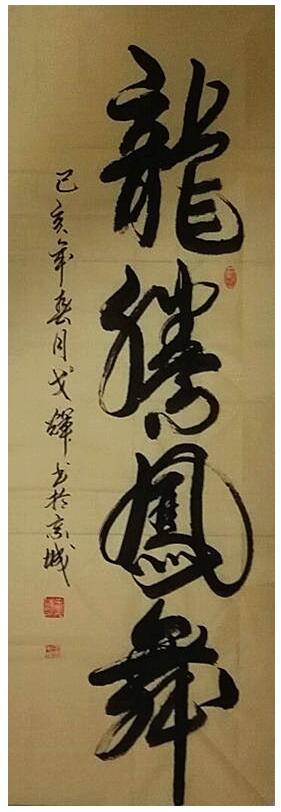 龍騰鳳舞
己亥年春月戈輝书於京城